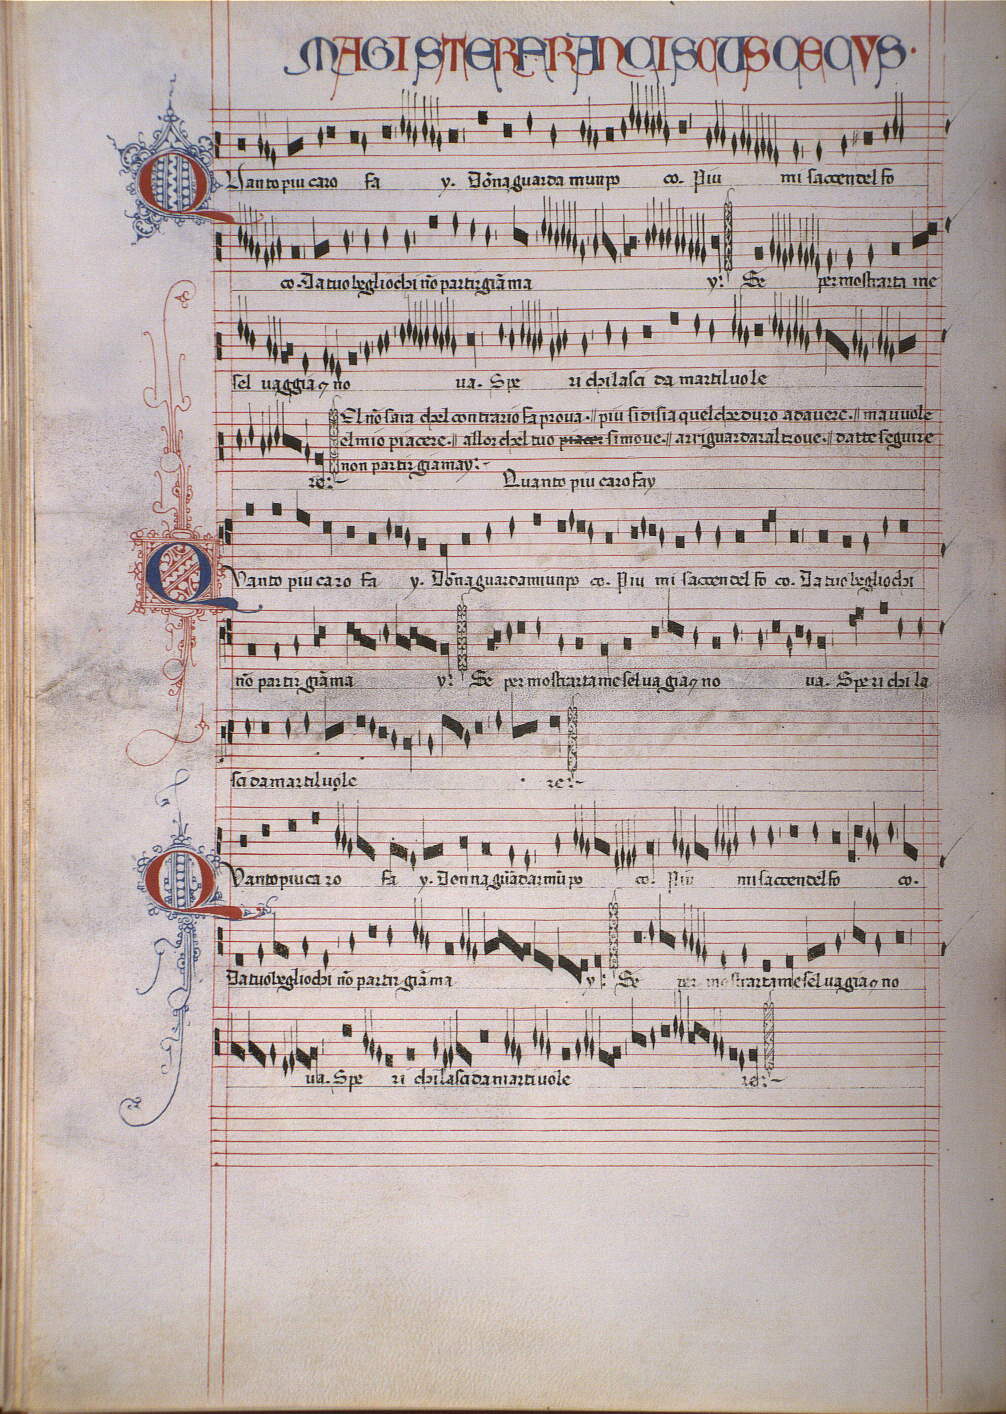 MAGISTER FRANCISCUS CECVS.
Quanto piu caro fa y. Dōna guarda munpo co. Piu mi saccendel fo
co. Da tuo begliochi nō partir giāma y: Se per mostrarta me
sel vaggia ⁊ no va. Spe ri chilasci da martiluole
El nō sara chel contrario fa prova. piu si disia quelche duro adavere. ma vuole
el mio piacere. allor chel tuo si move. arriguardar altrove. da tte seguire
non partir giamay:
re: Quanto piu caro fay
Quanto piu caro fa y. Dōna guardamunpo co. Piu mi saccendel fo co. Da tuo begliochi
nō partir giāma y: Se per mostrartame sel va gia ⁊ no va. Spe ri chi la
sci da martiluole re:
Quanto piu ca ro fa y. Don na guādarmū po co. Piu mi saccendelfo co.
Da tuo begliochi nō partir giāma y: Se per mostrartame sel va gia ⁊ no
va. Spe ri chilasci da marti vole re: